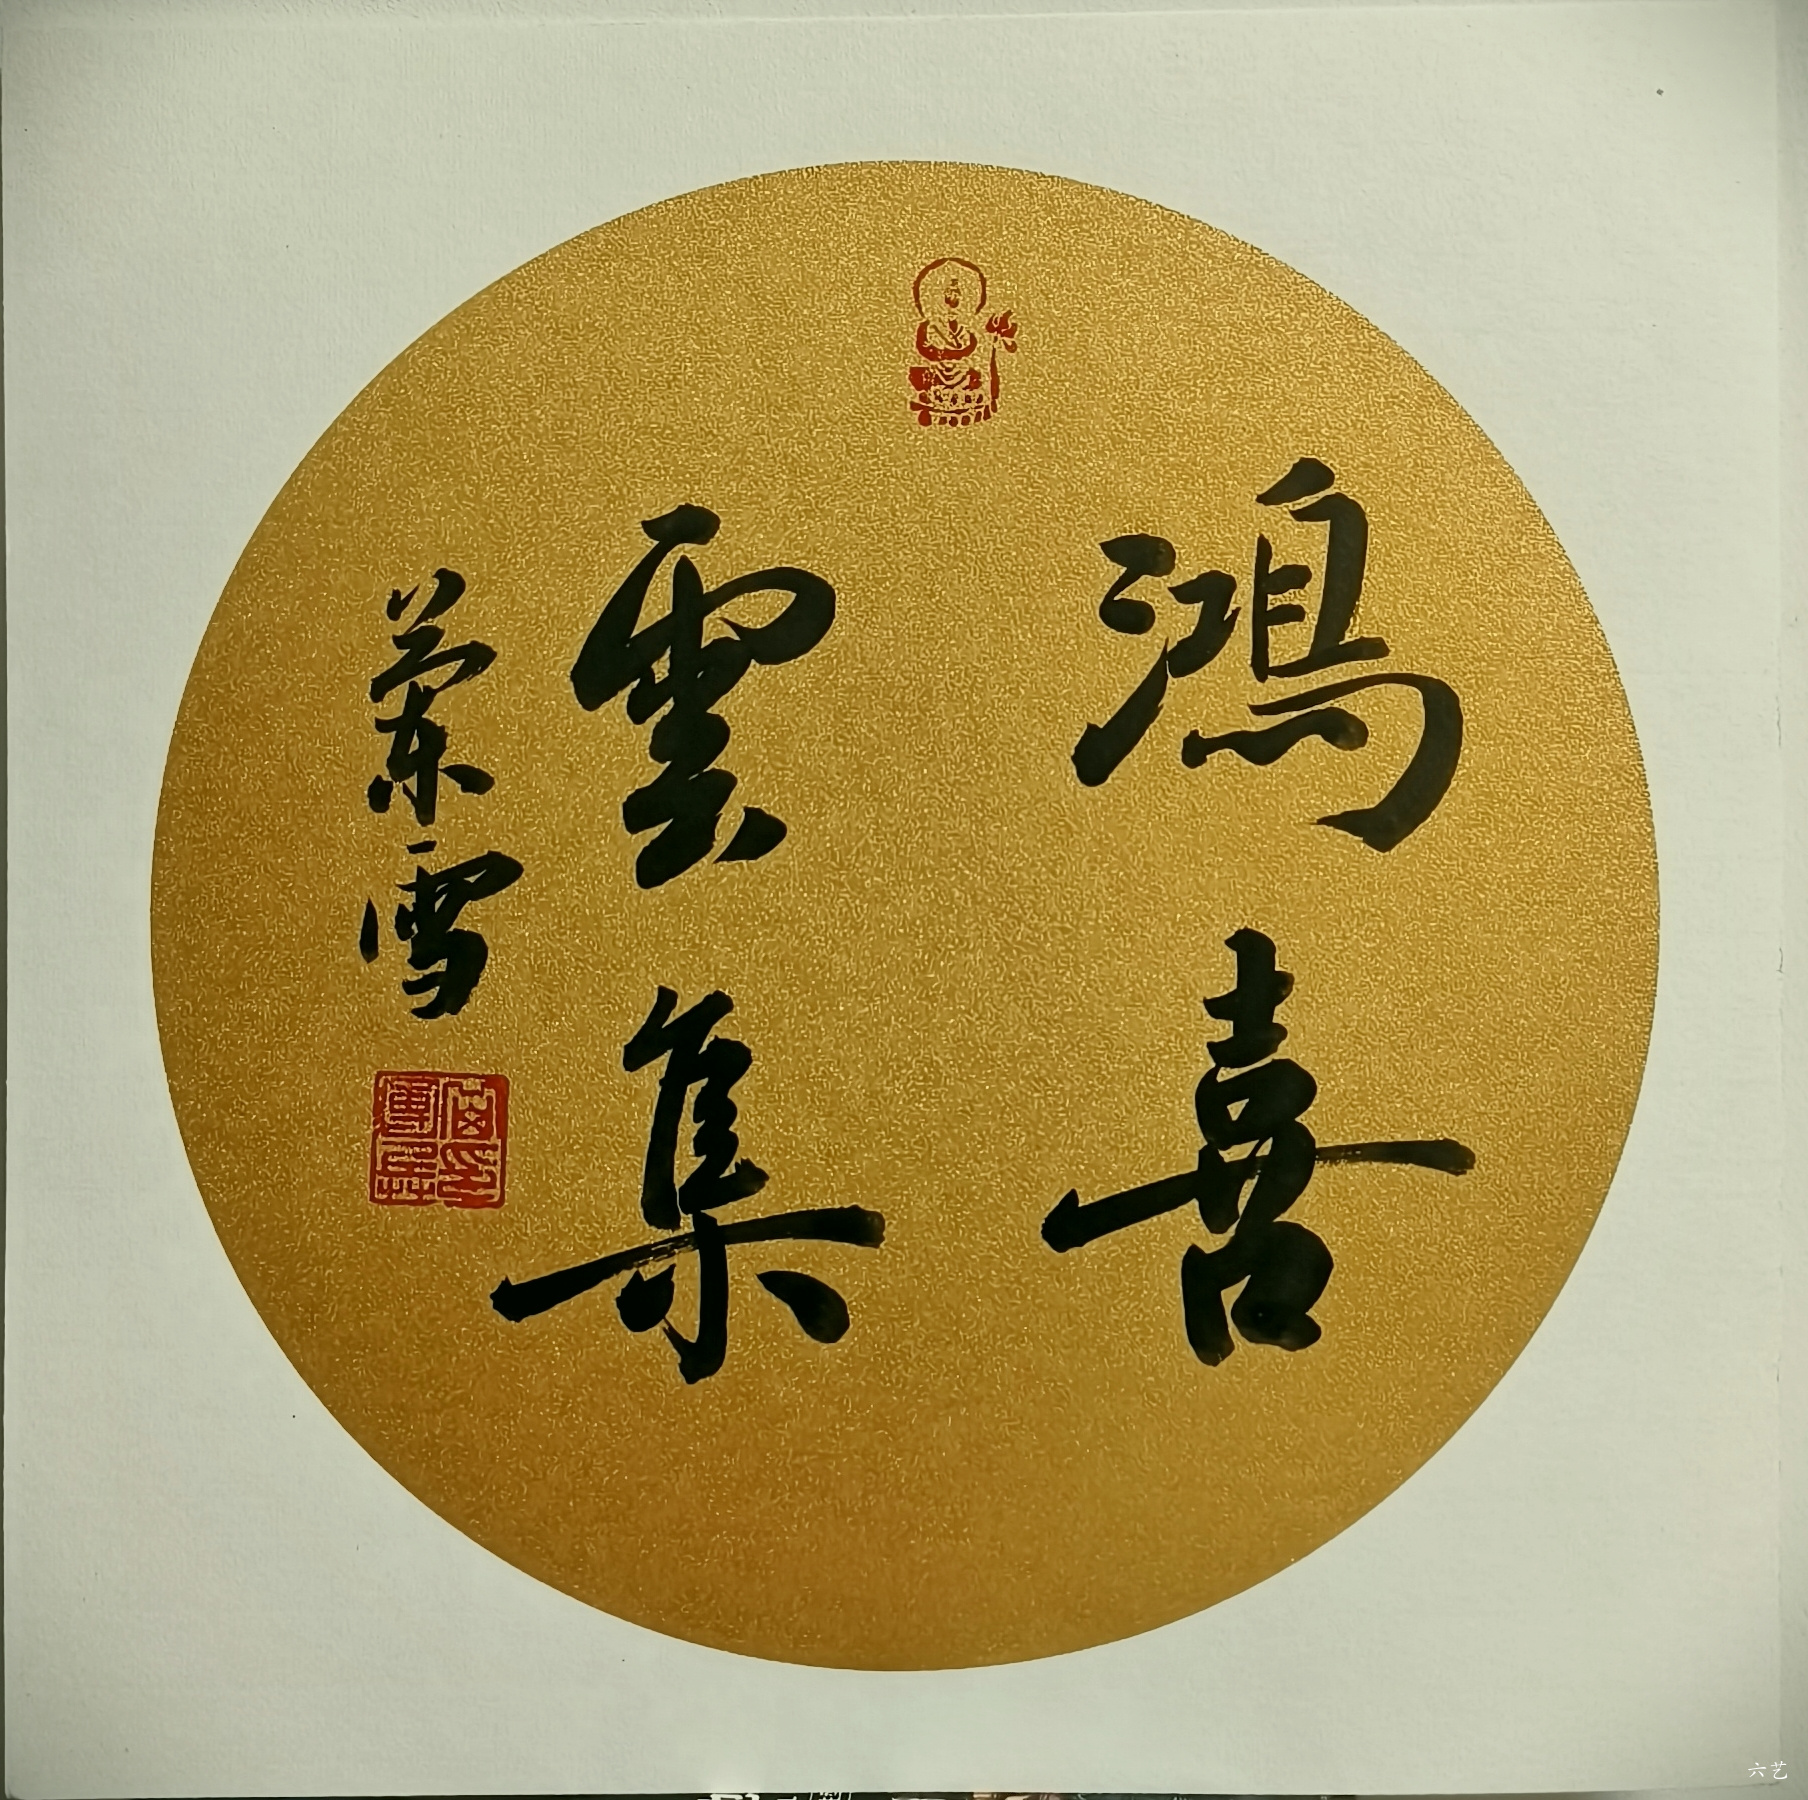 鴻喜
雲集
蘭雪
六艺